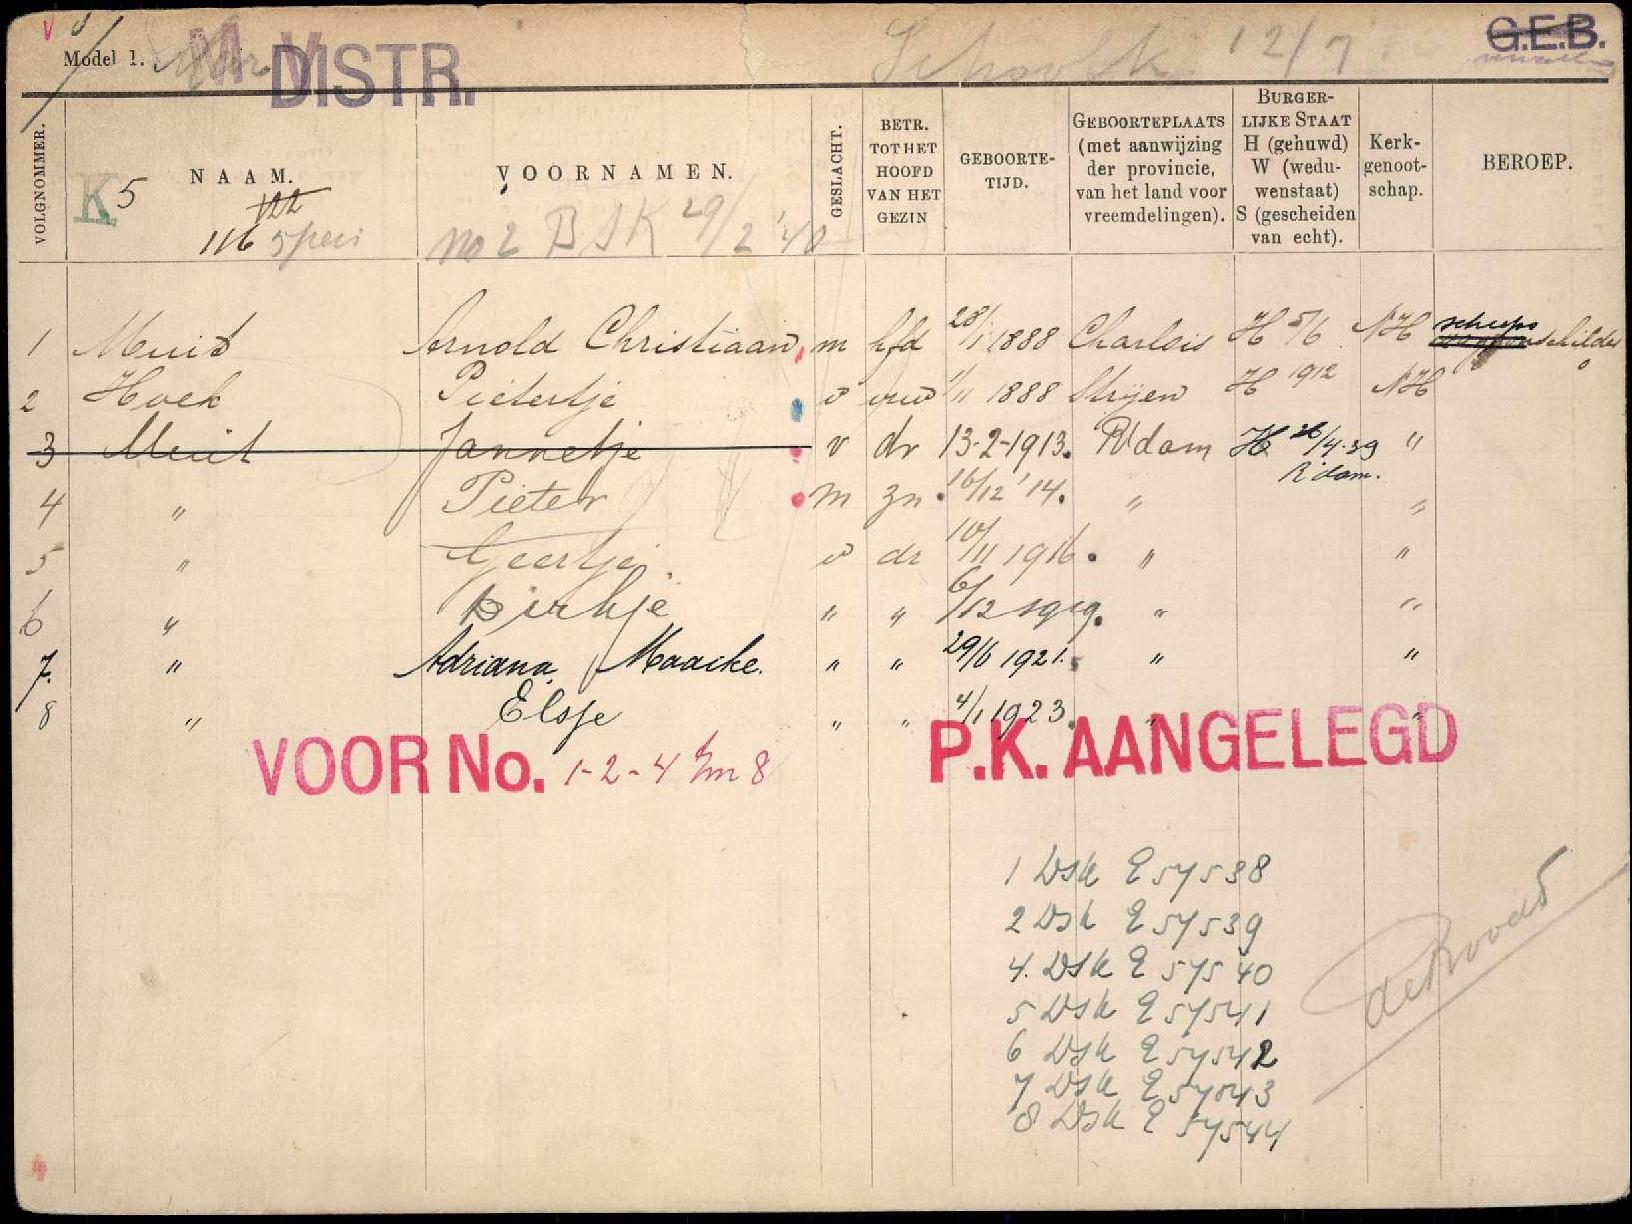 Model 1. M.V. DISTR. 12/7 G.E.B.
VOLGNOMMER. NAAM. VOORNAMEN. GESLACHT. BETR. TOT HET HOOFD VAN HET GEZIN GEBOORTE-TIJD. GEBOORTEPLAATS (met aanwijzing der provincie, van het land voor vreemdelingen). BURGER-LIJKE STAAT H (gehuwd) W (wedu-wenstaat) S (gescheiden van echt). Kerk-genoot-schap. BEROEP.
K 5
122
116 no 2 BSK 29/2 '40
1 Muit Arnold Christiaan m hfd 28/1 1888 Charlois H 5/6 NH scheepsschilder
2 Hoek Pietertje v vrw 1/11 1888 Strijen H 1912 NH
3 Muit Jannetje v dr 13-2-1913. R'dam H 26/4-39 "
R'dam.
4 " Pieter m zn. 16/12 '14. " "
5 " Geertje v dr 10/11 1916. " "
6 " Dirkje " " 6/12 1919. " "
7. " Adriana Maaike. " " 29/6 1921. " "
8 " Elsje " " 4/1 1923. " "
VOOR No. 1-2-4 t/m 8 P.K. AANGELEGD
1 DSK E 57538
2 DSK E 57539
4. DSK E 57540
5 DSK E 57541
6 DSK E 57542
7 DSK E 57543
8 DSK E 57544